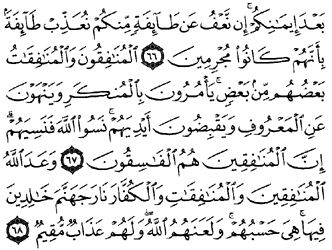 بَعْدَ إِيمَانِكُمْ إِن نَّعْفُ عَن طَائِفَةٍ مِّنكُمْ نُعَذِّبْ طَائِفَةً
بِأَنَّهُمْ كَانُوا مُجْرِمِينَ ٦٦ الْمُنَافِقُونَ وَالْمُنَافِقَاتُ
بَعْضُهُم مِّن بَعْضٍ يَأْمُرُونَ بِالْمُنكَرِ وَيَنْهَوْنَ
عَنِ الْمَعْرُوفِ وَيَقْبِضُونَ أَيْدِيَهُمْ نَسُوا اللَّهَ فَنَسِيَهُمْ
إِنَّ الْمُنَافِقِينَ هُمُ الْفَاسِقُونَ ٦٧ وَعَدَ اللَّهُ
الْمُنَافِقِينَ وَالْمُنَافِقَاتِ وَالْكُفَّارَ نَارَ جَهَنَّمَ خَالِدِينَ
فِيهَا هِيَ حَسْبُهُمْ وَلَعَنَهُمُ اللَّهُ وَلَهُمْ عَذَابٌ مُّقِيمٌ ٦٨